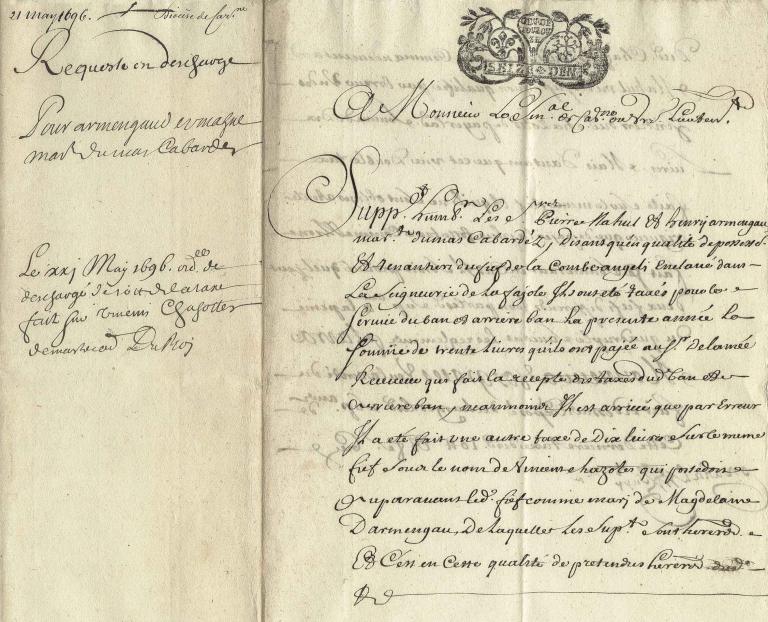 21 may 1696. Diocese de
Requeste en descharge
Pour armengaud et
mar^s du mas Cabardes
Le xxj May 1696. ord^ce de
descharge de de la taxe
fait sur vincens Chasottes
de Du Roj
GEN. DE
TOULOU
SE
SEIZE DEN.
A Monsieur Le Sen^al de ou Lieuten^t
Supp. humb^t Les Pierre Mahul Et henry armengau
mar^ts du mas Cabardéz, disans qu'en qualité de possess^rs
Et tenantiers du fief de la Combe angeli Enclavé dans
La Seigneurie de la fajole Ils ont eté taxés pour le
Service du ban et arriere ban La presente année La
Somme de trente livres qu'ils ont payée au S^r Delamée
Receveur qui fait la recepte des taxes dud^t ban Et
arriere ban, neanmoins Il est arrivé que par Erreur
Il a eté fait une autre taxe de Dix livres Sur le meme
fief Sous le nom de Vincent chazotes qui possedoit
auparavant led^t fief comme mari de Magdelaine
Darmengau, De laquelle Les Sup^ts Sont heretiers
Et C'est en Cette qualité de pretendus heretiers